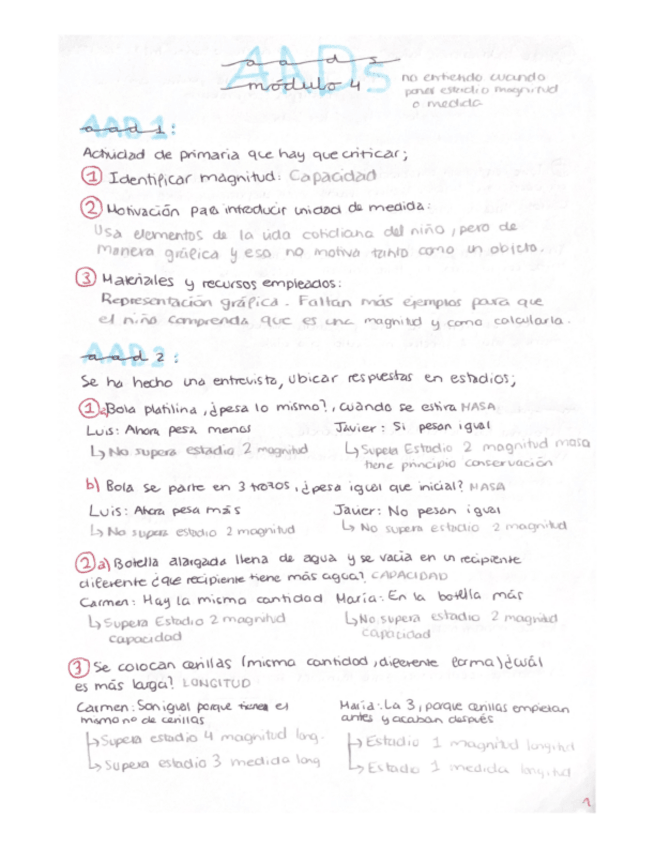 AADs
módulo 4
no entiendo cuando
poner estadio magnitud
o medida
AAD 1:
Actividad de primaria que hay que criticar;
① Identificar magnitud: Capacidad
② Motivación para introducir unidad de medida:
Usa elementos de la vida cotidiana del niño, pero de
manera gráfica y eso no motiva tanto como un objeto.
③ Materiales y recursos empleados:
Representación gráfica. Faltan más ejemplos para que
el niño comprenda que es una magnitud y como calcularla.
AAD 2:
Se ha hecho una entrevista, ubicar respuestas en estadios;
① a) Bola platilina, ¿pesa lo mismo?, cuando se estira MASA
Luis: Ahora pesa menos
Javier: Si pesan igual
↳ No supera estadio 2 magnitud
↳ Supera Estadio 2 magnitud masa
tiene principio conservación
b) Bola se parte en 3 trozos, ¿pesa igual que inicial? MASA
Luis: Ahora pesa más
Javier: No pesan igual
↳ No supera estadio 2 magnitud
↳ No supera estadio 2 magnitud
② a) Botella alargada llena de agua y se vacia en un recipiente
diferente ¿que recipiente tiene más agua? CAPACIDAD
Carmen: Hay la misma cantidad
María: En la botella más
↳ Supera Estadio 2 magnitud
capacidad
↳ No supera estadio 2 magnitud
capacidad
③ Se colocan cerillas (misma cantidad, diferente forma) ¿cuál
es más larga? LONGITUD
Carmen: Son igual porque tienen el
mismo no de cerillas
María: La 3, porque cerillas empiezan
antes y acaban después
↳ Supera estadio 4 magnitud long.
↳ Supera estadio 3 medida long
↳ Estadio 1 magnitud longitud
↳ Estadio 1 medida longitud
1